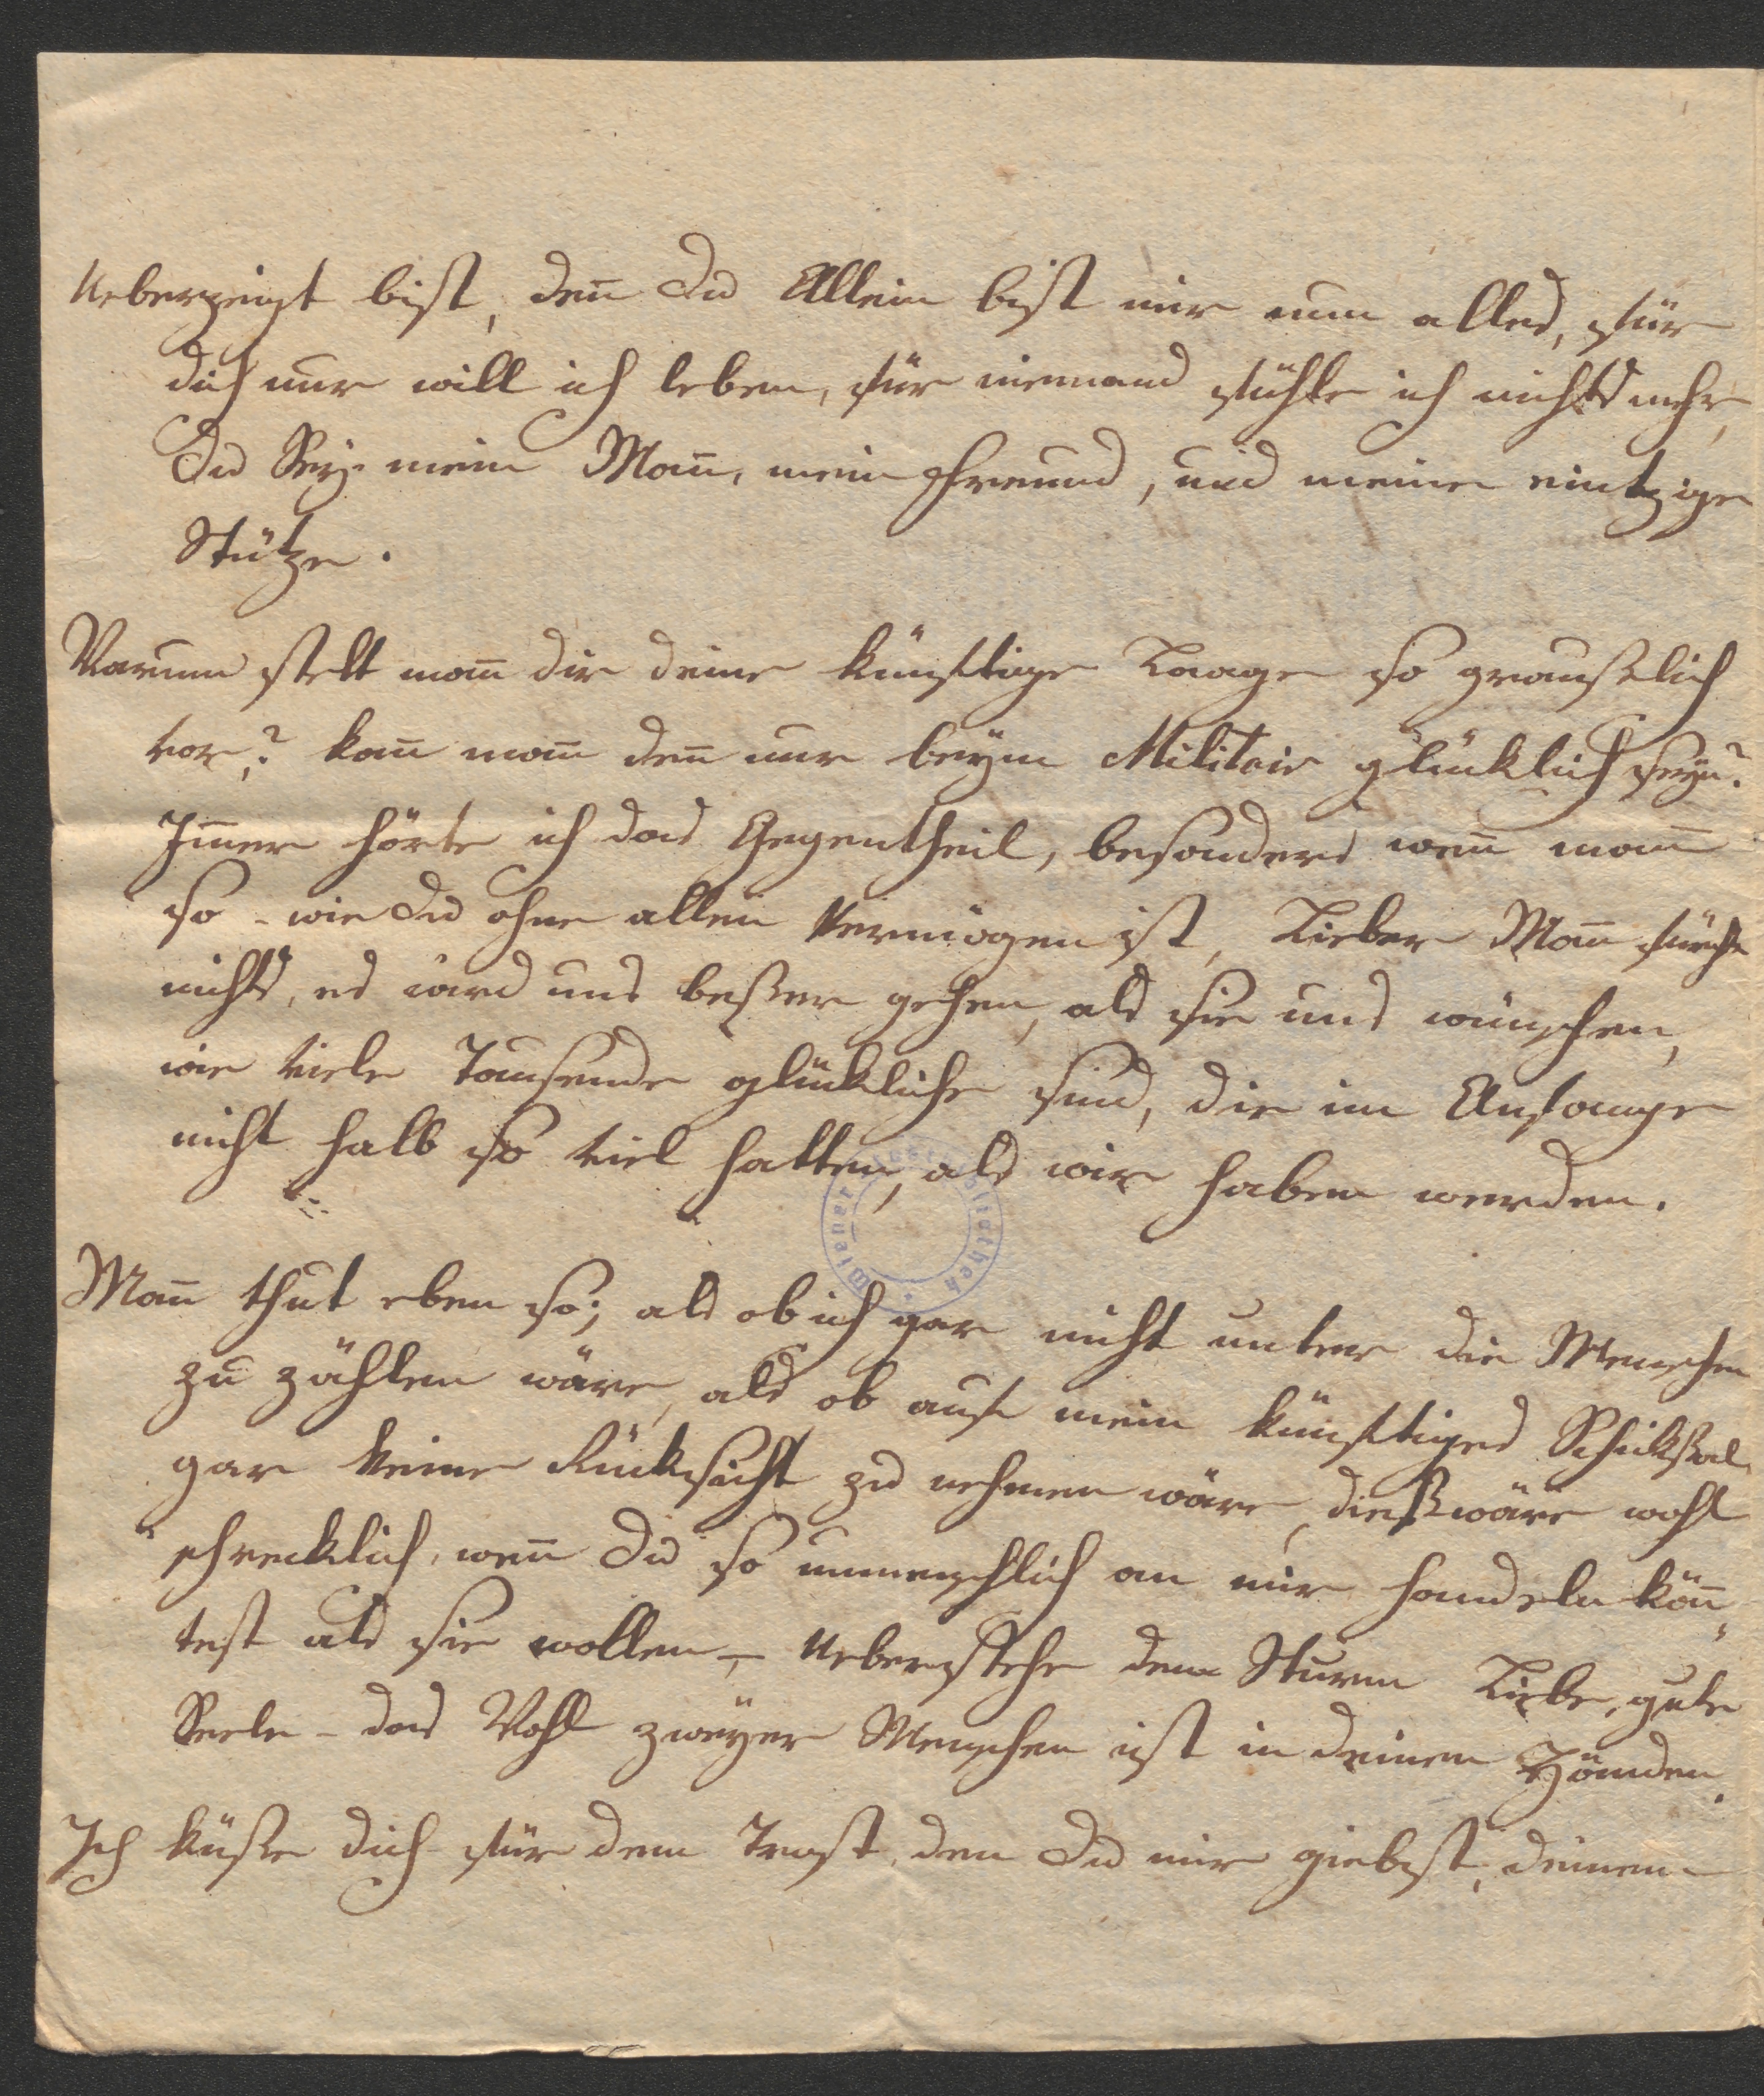 Ueberzeigt bist, den̄ Du Allein bist mir nun alles, für
dich nur will ich leben, für niemand fühle ich nichts mehr,
Du Sey mein Man̄, mein Freund, und meine eintzige
Stütze.
Warum stelt man̄ dir deine künftige Laage so graußlich
vor,? kan̄ man̄ den̄ nur beÿm Militair glücklich seÿn?
Im̄er hörte ich das Gegentheil, besonders wen̄ man̄
so - wie Du ohne allen Vermögen ist, Lieber Man̄ fürcht
nichts, es wird uns beßer gehen, als sie uns wünschen,
wie viele Tausende glückliche sind, die im Anfange
nicht halb so viel hatten, als wir haben werden.
Man̄ thut eben so; als ob ich gar nicht unter die Menschen
zu zählen wäre, als ob auf mein künftiges Schicksal
gar keine Rücksicht zu nehmen wäre, dieß wäre wohl
schrecklich, wen̄ Du so unmenschlich an mir handeln kön̄„
test als sie wollen, – Ueberstehe dem Sturm Liebe, gute
Seele - das Wohl zweÿer Menschen ist in deinen Händen.
Ich küße dich für dem Trost, den Du mir giebst, deinem